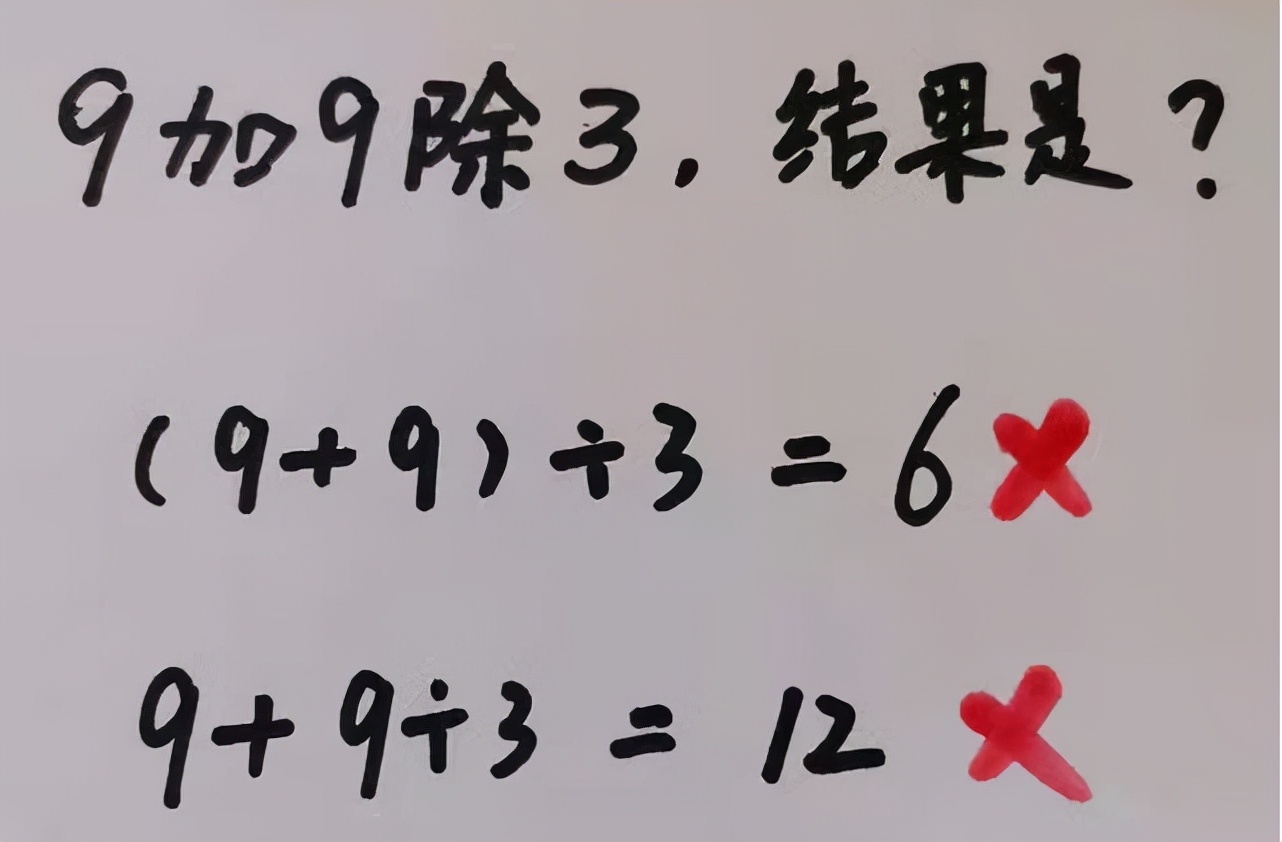 9加9除3.结果是?
(9+9)÷3=6
9+9÷3=12